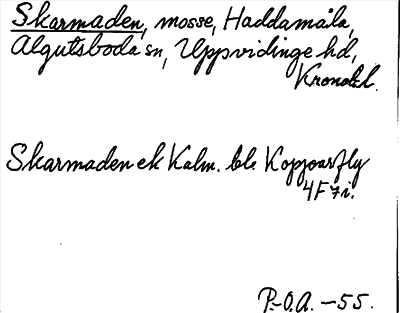 Skarmaden, mosse, Haddamåla,
Algutsboda sn, Uppvidinge hd,
Kronob.l.
Skarmaden ek Kalm. bl. Kopparfly
4F 7i.
P.-O.A. -55.